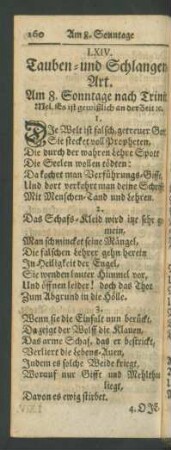 160 Am 8. Sonntage
LXIV.
Tauben- und Schlangen
Art.
Am 8. Sonntage nach Trinit
Mel. Es ist gewißlich an der Zeit ꝛc.
1.
DIe Welt ist falsch, getreuer Got
Sie stecket voll Propheten,
Die durch der wahren Lehre Spott
Die Seelen wollen tödten:
Da kochet man Verführungs-Gifft
Und dort verkehrt man deine Schrifft
Mit Menschen-Tand und Lehren.
2.
Das Schafs-Kleid wird itzt sehr ge
mein,
Man schmincket seine Mängel,
Die falschen Lehrer gehn herein
In Heiligkeit der Engel,
Sie wenden lauter Himmel vor,
Und öffnen leider! doch das Thor
Zum Abgrund in die Hölle.
3.
Wenn sie die Einfalt nun berückt,
Da zeigt der Wolff die Klauen,
Das arme Schaf, das er bestrickt,
Verliert die Lebens-Auen,
Indem es solche Weide kriegt,
Worauf nur Gifft und Mehlthau
liegt,
Davon es ewig stirbet.
4. DIE